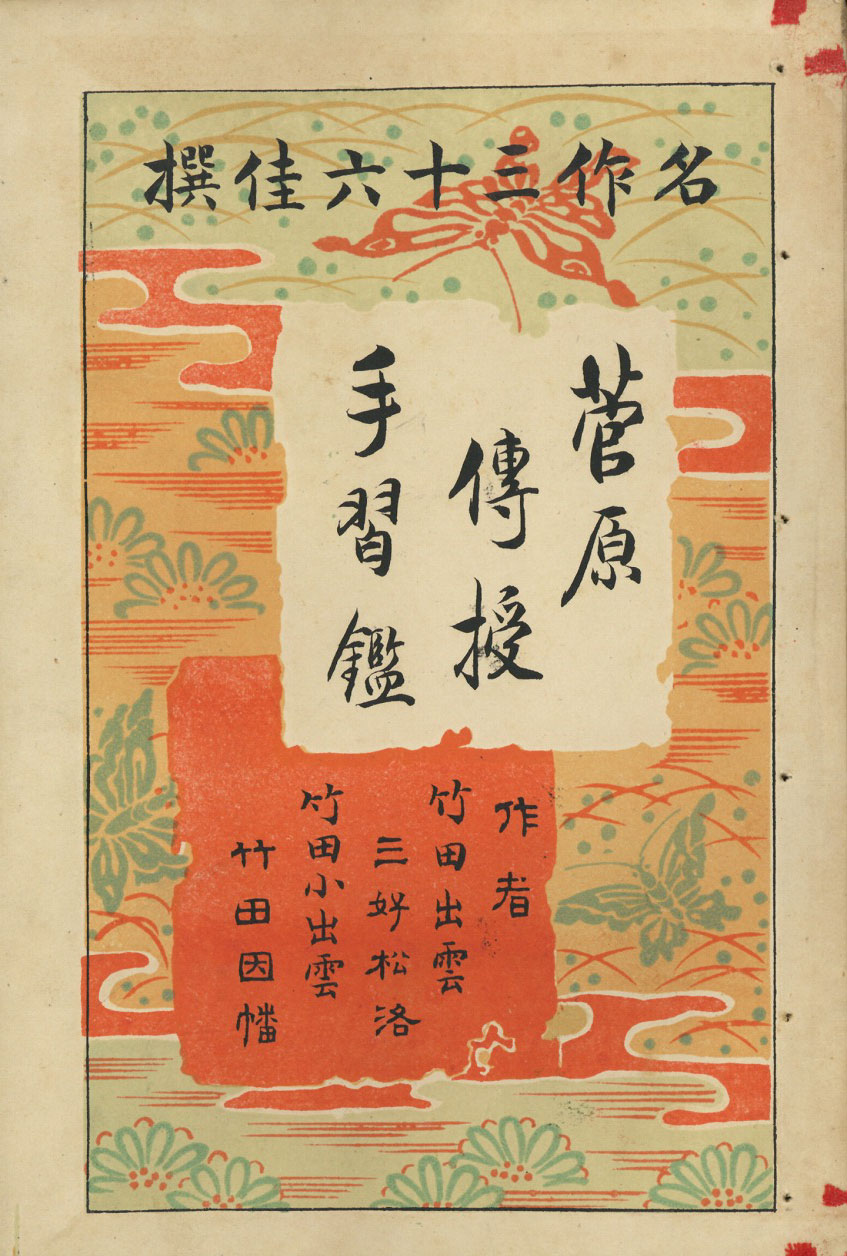 名作三十六佳撰
菅原
傳授
手習鑑
作者
竹田出雲
三好松洛
竹田小出雲
竹田因幡